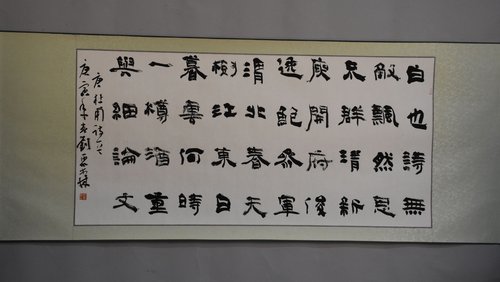 白也詩無
敵飄然思
不群清新
庾開府俊
逸鮑參軍
渭北春天
樹江東日
暮雲何時
一樽酒重
與細論文
唐杜甫詩
庚寅年